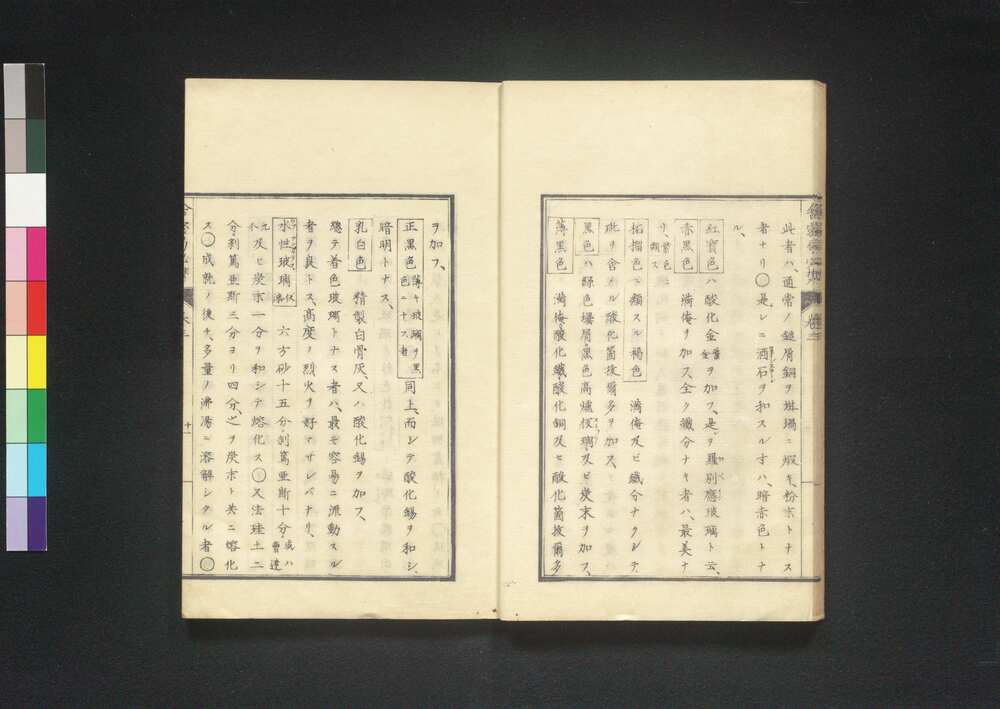 此者ハ、通常ノ鎚屑銅ヲ坩堝ニ煆キ、粉末トナス
者ナリ○是レニ酒石ヲ和スルオハ、暗赤色トナ
ル、
紅寶色ハ酸化金ヲ加フ、是ヲ羅別應玻璃ト云、
赤黒色 満俺ヲ加ス、全ク鐵分ナキ者ハ、最美ナ
リ、紫色ニ類ス
柘榴色ニ類スル褐色 満俺及ビ鐵分ナクシテ、
砒ヲ含メル酸化箇抜爾多ヲ加フ、
黒色ハ緑色壜屑、黒色高爐及ビ炭末ヲ加フ、
薄黒色 満俺酸化鐵、酸化銅及ヒ酸化箇抜爾多
ヲ加フ、
正黒色 薄キ玻璃ヲ黒色ニナス者 同上、而シテ酸化錫ヲ和シ、
暗明トナス、
乳白色 精製白骨灰、又ハ酸化錫ヲ加フ、
總テ着色玻璃トナス者ハ、最モ容易ニ流動スル
者ヲ良トス、高度ノ烈火ヲ好マザレバナリ、
水性玻璃 六方砂十五分、剥篤亜斯十分、或ハ曹達
九分及ヒ炭末一分ヲ和シテ熔化ス○又法硅土二
分、剥篤亜斯三分ヨリ四分、之ヲ炭末ト共ニ熔化
ス○成就ノ後チ、多量ノ沸湯ニ溶解シタル者○
巻之三
十一